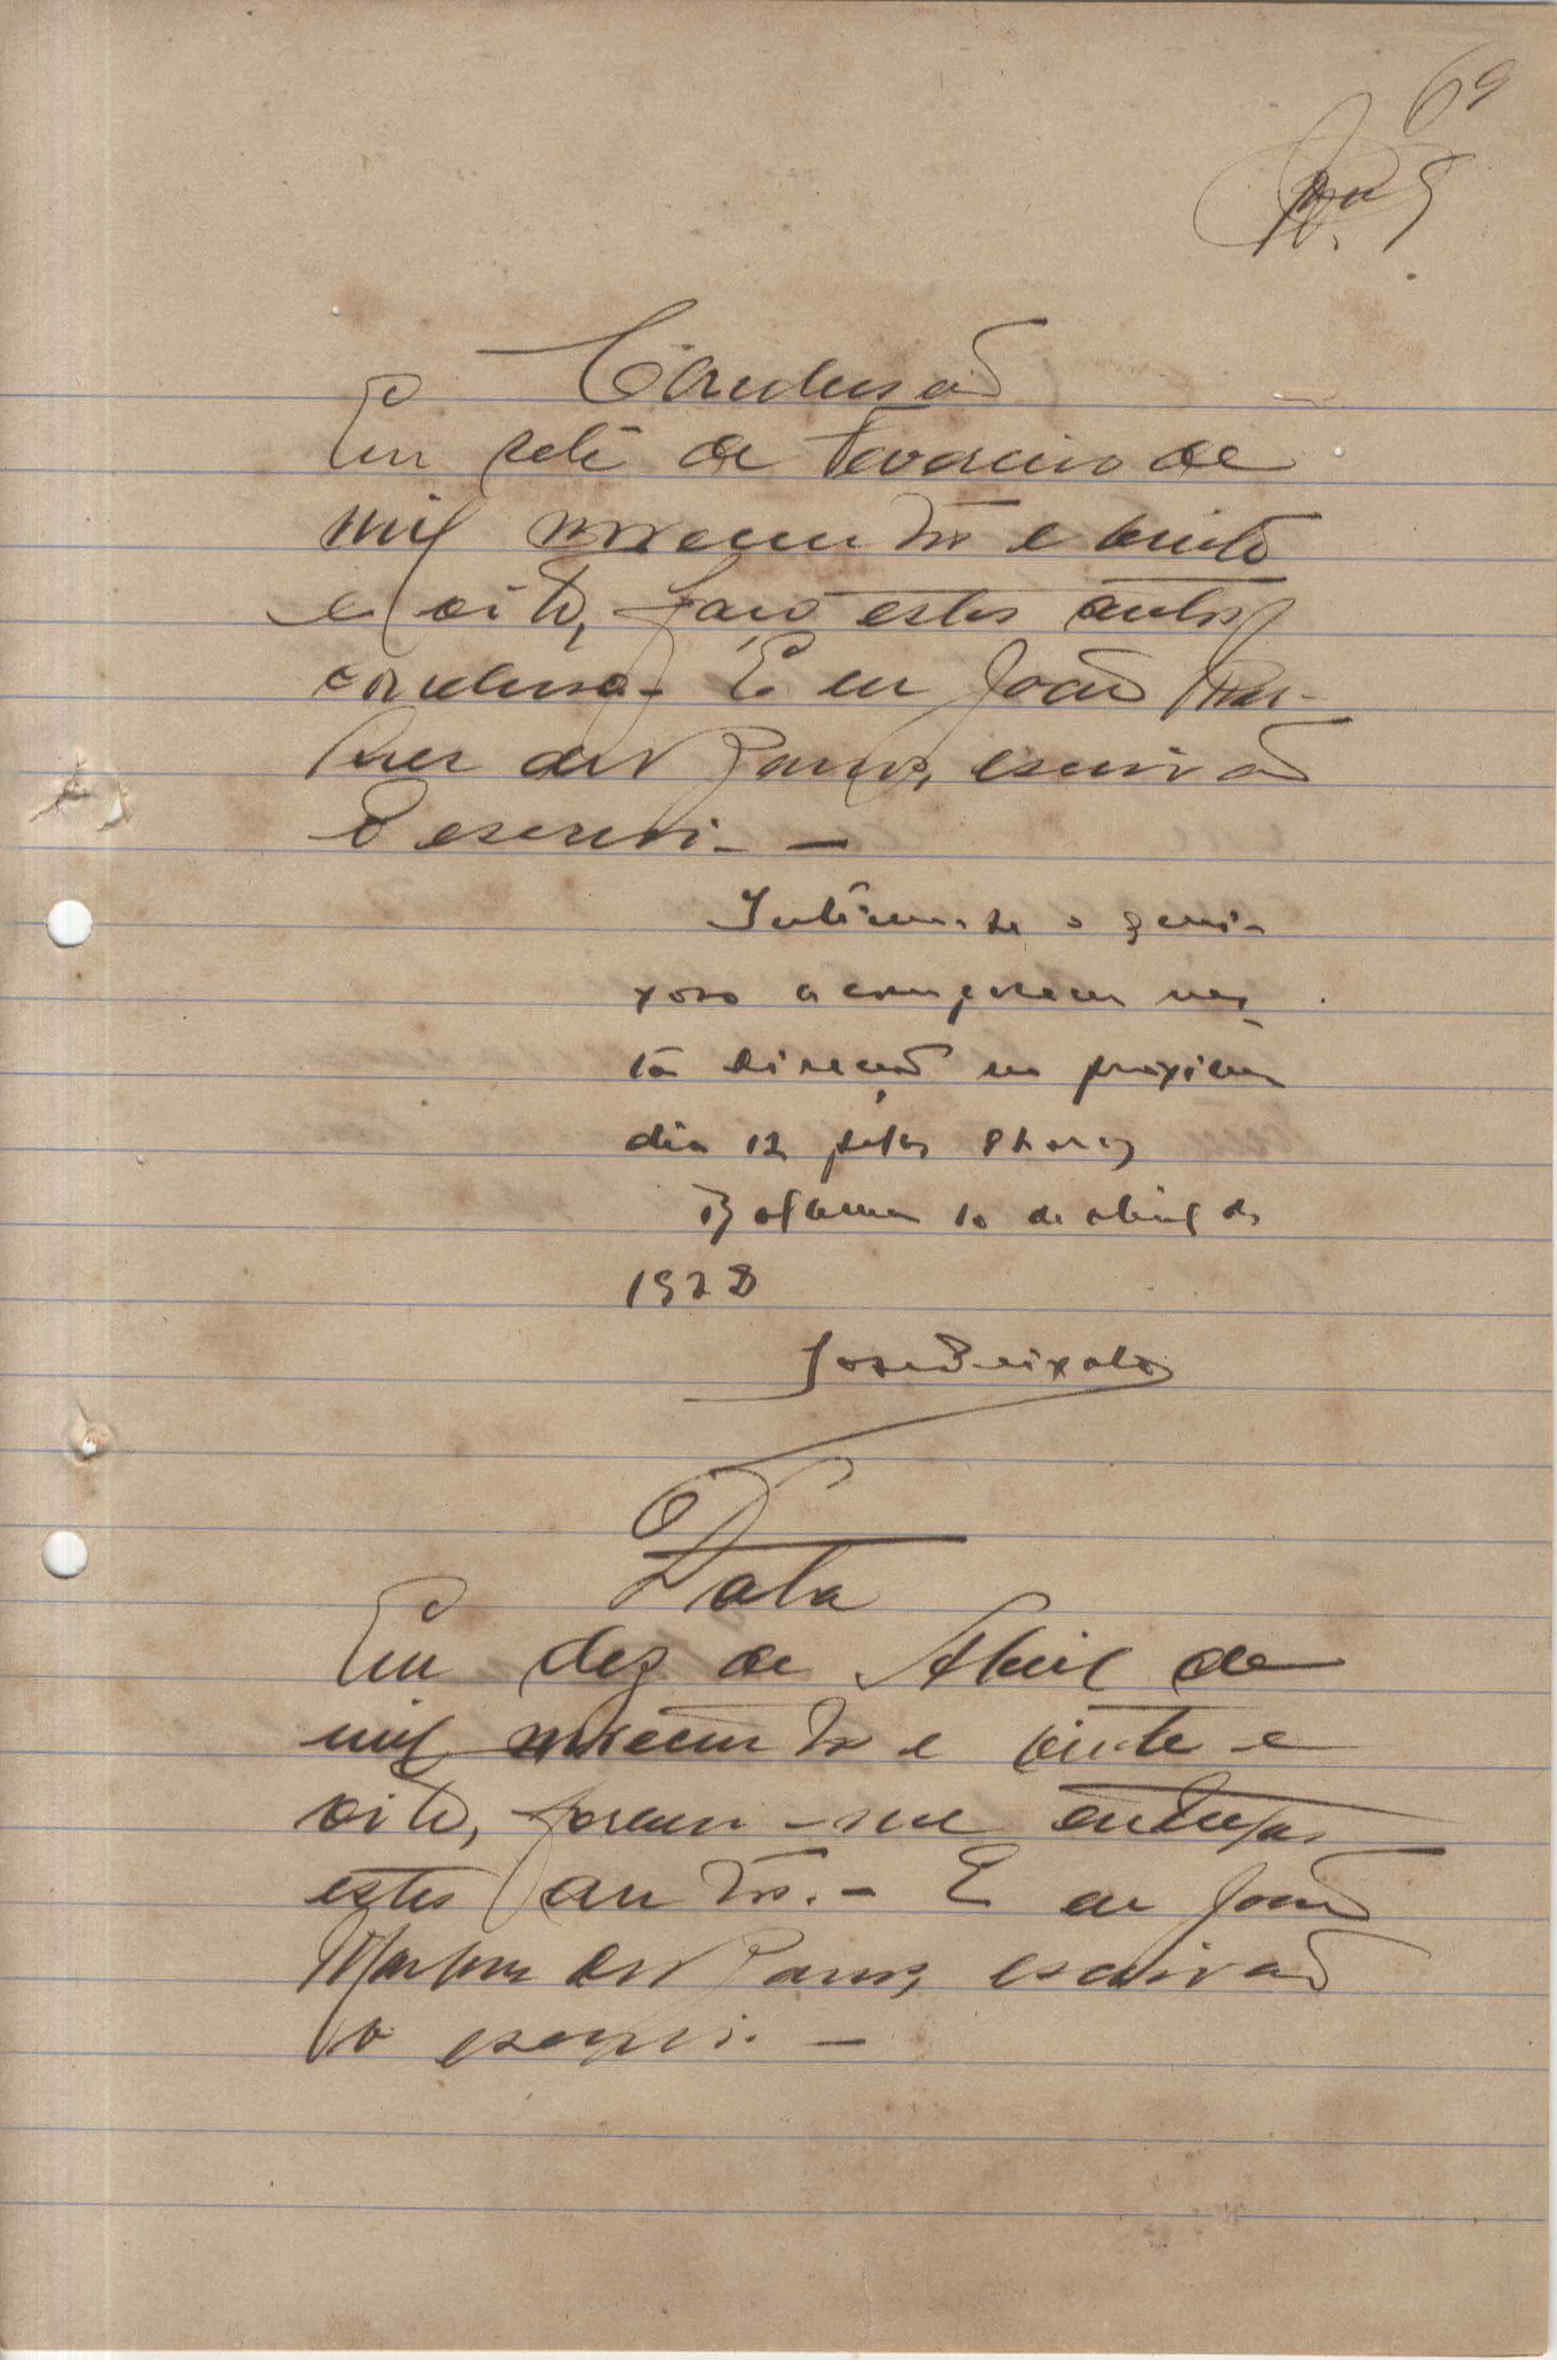 69
Conclusão
Em sete de Fevereiro de
mil novecentos e vinte
e oito, faço estes autos
conclusos. E eu João Mar-
ques dos Passos, escrivão
o escrevi. -
Intime-se o quei-
xoso a comparecer nes-
ta direcção no proximo
dia 12 pelas 8 horas
Bolama 10 de abril de
1928
José Peixoto
Data
Em dez de Abril de
mil novecentos e vinte e
oito, foram-me entregues
estes autos. - E eu João
dos Passos, escrivão
o escrevi. -